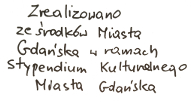 Zrealizowano
ze środków Miasta
Gdańska w ramach
Stypendium Kulturalnego
Miasta Gdańska